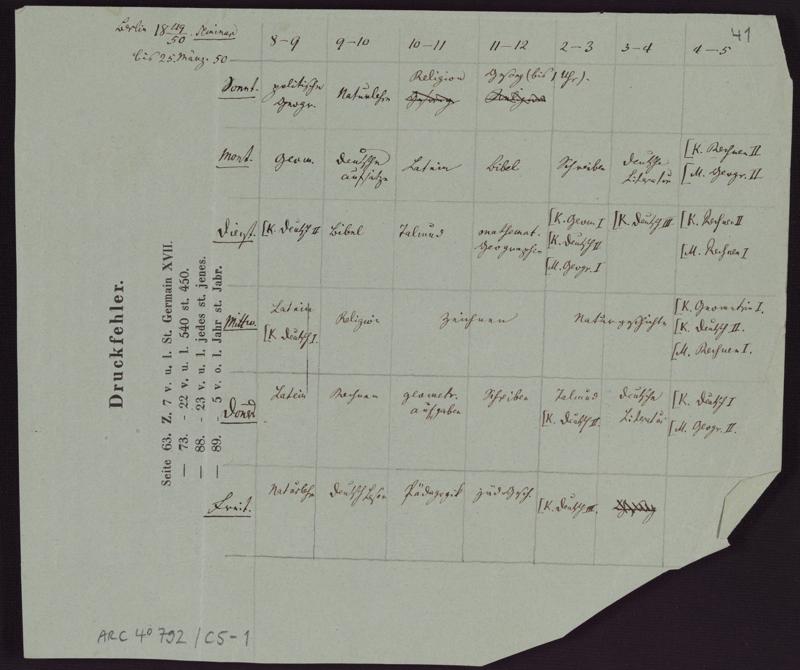 41
Berlin 18 49/50. Seminar
bis 25. März. 50
8–9 9–10 10–11 11–12 2–3 3–4 4–5
Sonnt. politische Geogr. Naturlehre Religion Gesang (bis 1 Uhr).
Gesang Religion
Mont. Geom. deutsche Aufsätze Latein Bibel Schreiben deutsche Literatur [K. Rechnen II
[M. Geogr. II
Dienst. [K. Deutsch II Bibel Talmud mathemat. Geographie [K. Geom. I [K. Deutsch III [K. Rechnen II
[K. Deutsch II
[M. Geogr. I [M. Rechnen I
Mittw. Latein Religion Zeichnen Naturgeschichte [K. Geometrie I.
[K. Deutsch I. [K. Deutsch II.
[M. Rechnen I.
Donnerst. Latein Rechnen geometr. Aufgaben Schreiben Talmud deutsche Literatur [K. Deutsch I
[K. Deutsch II. [M. Geogr. II.
Freit. Naturlehre Deutsch Lesen Pädagogik jüd. Gesch. [K. Deutsch III.
Druckfehler.
Seite 63. Z. 7 v. u. l. St. Germain XVII.
— 73. - 22 v. u. l. 540 st. 450.
— 88. - 23 v. u. l. jedes st. jenes.
— 89. - 5 v. o. l. Jahr st. Jahr.
ARC 4° 792 / C5-1